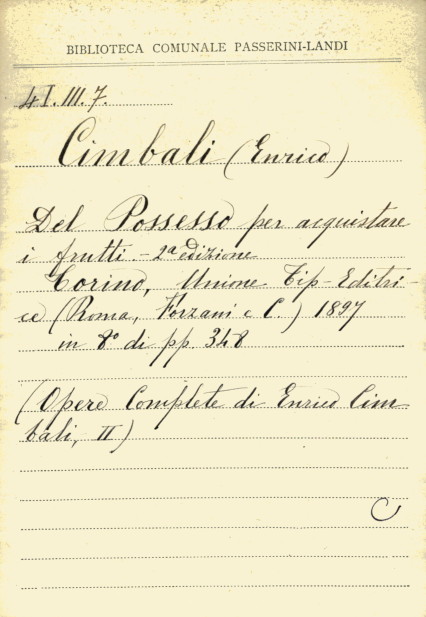 BIBLIOTECA COMUNALE PASSERINI-LANDI
4I.III.7.
Cimbali (Enrico)
Del Possesso per acquistare
i frutti. - 2ª edizione
Torino, Unione Tip-Editri-
ce (Roma, Forzani e C.) 1897
in 8º di pp. 348
(Opere Complete di Enrico Cim-
bali, II)
C